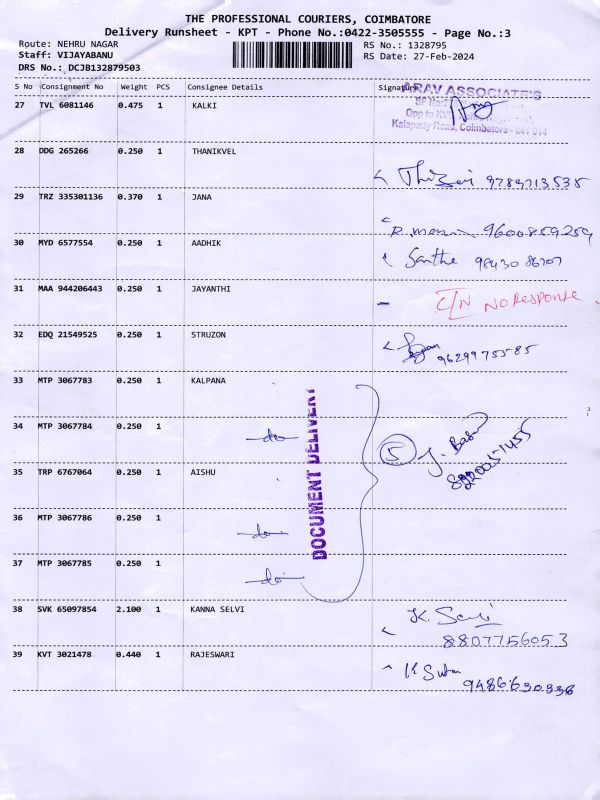 THE PROFESSIONAL COURIERS, COIMBATORE
Delivery Runsheet - KPT - Phone No.:0422-3505555 - Page No.:3
Route: NEHRU NAGAR RS No.: 1328795
Staff: VIJAYABANU RS Date: 27-Feb-2024
DRS No.: DCJB132879503
S No Consignment No Weight PCS Consignee Details Signature
ARAV ASSOCIATES
27 TVL 6081146 0.475 1 KALKI
SF No:
Opp to
Kalapatty Road, Coimbatore - 641 014
28 DDG 265266 0.250 1 THANIKVEL
9789713535
29 TRZ 335301136 0.370 1 JANA
9600859259
30 MYD 6577554 0.250 1 AADHIK
Santhe 98430 86707
31 MAA 944206443 0.250 1 JAYANTHI
C/N NO RESPONSE
32 EDQ 21549525 0.250 1 STRUZON
9629975585
33 MTP 3067783 0.250 1 KALPANA
34 MTP 3067784 0.250 1
do
DOCUMENT DELIVERY
5
J. Basu
8220051455
35 TRP 6767064 0.250 1 AISHU
36 MTP 3067786 0.250 1
do
37 MTP 3067785 0.250 1
do
38 SVK 65097854 2.100 1 KANNA SELVI
K. Selvi
8807756053
39 KVT 3021478 0.440 1 RAJESWARI
K Sutha
9486630336